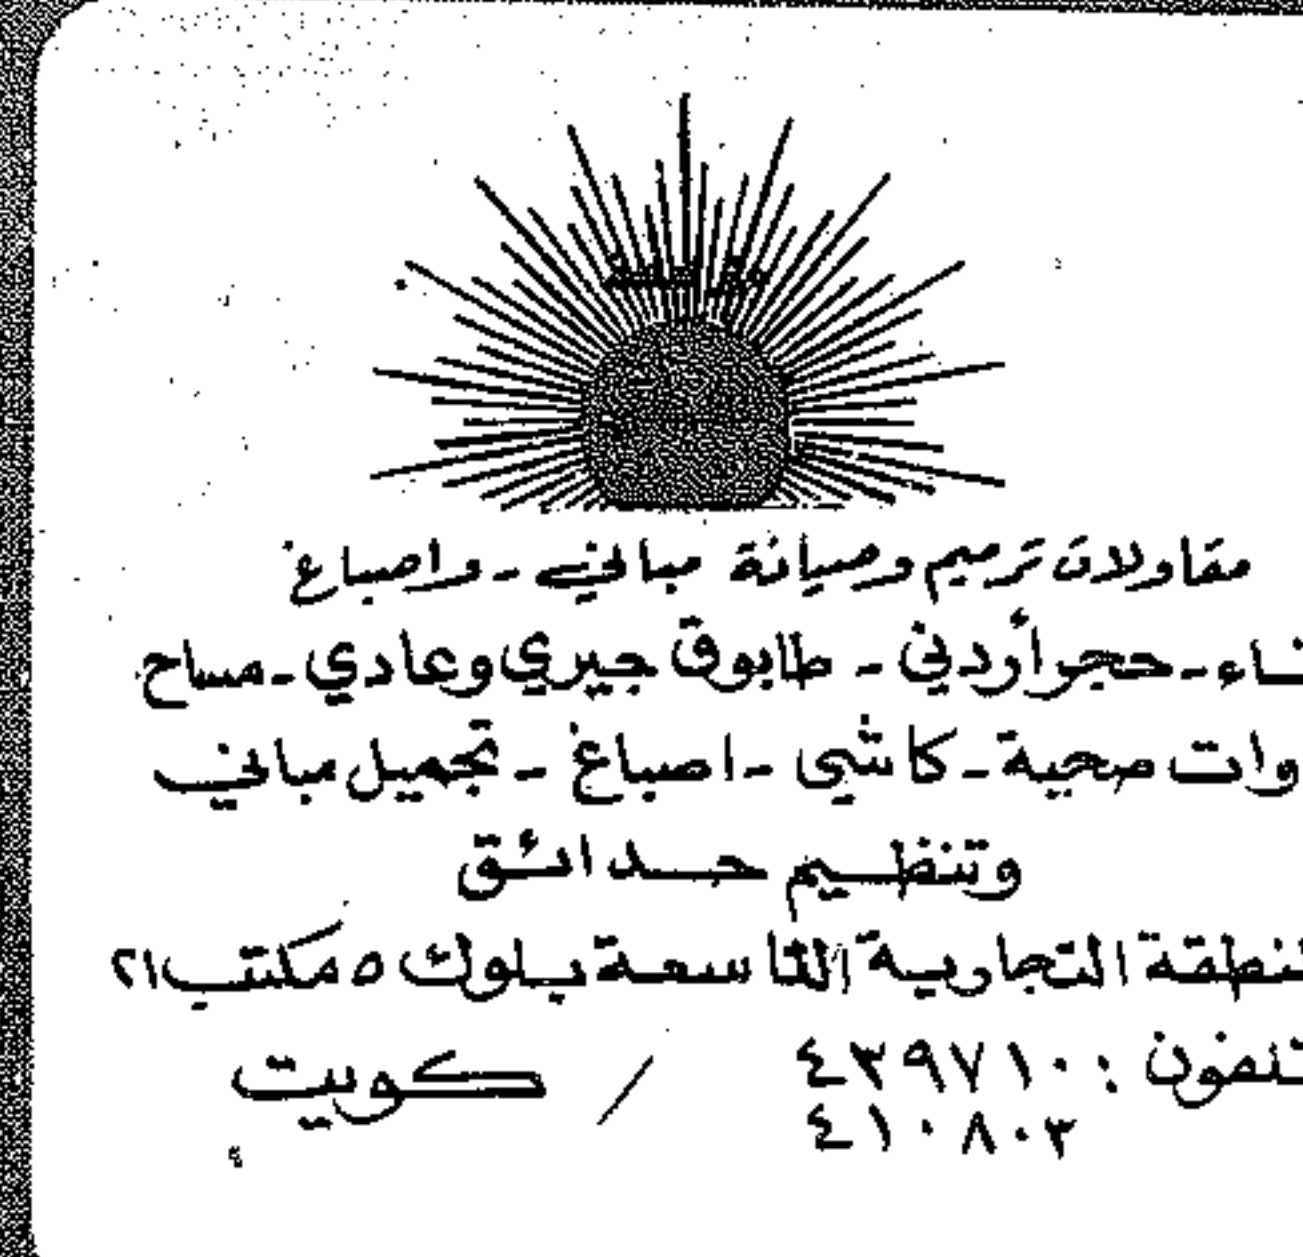 مقاولات ترميم وصيانة مباني - واصباغ
ـناء - حجر أردني - طابوق جيري وعادي - مساح
وات صحية - كاشي - اصباغ - تجميل مباني
وتنظيم حدائق
لمنطقة التجارية التاسعة بلوك ٥ مكتب ٢١
تلفون : ٤٣٩٧١٠ / كويت
٤١٠٨٠٣